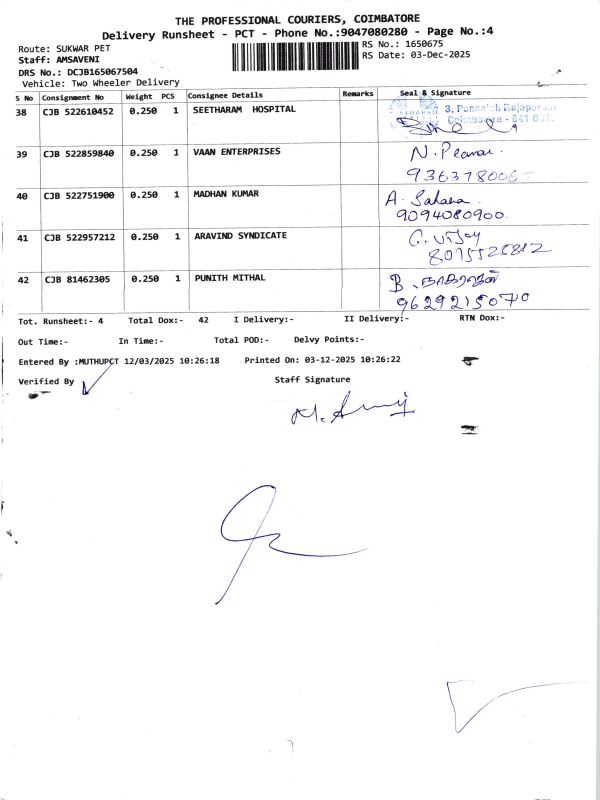 THE PROFESSIONAL COURIERS, COIMBATORE
Delivery Runsheet - PCT - Phone No.:9047080280 - Page No.:4
Route: SUKWAR PET RS No.: 1650675
Staff: AMSAVENI RS Date: 03-Dec-2025
DRS No.: DCJB165067504
Vehicle: Two Wheeler Delivery
S No Consignment No Weight PCS Consignee Details Remarks Seal & Signature
38 CJB 522610452 0.250 1 SEETHARAM HOSPITAL
Coimbatore - 641 001.
39 CJB 522859840 0.250 1 VAAN ENTERPRISES
40 CJB 522751900 0.250 1 MADHAN KUMAR A. Sahana
9094080900
41 CJB 522957212 0.250 1 ARAVIND SYNDICATE C. Vijay
42 CJB 81462305 0.250 1 PUNITH MITHAL B. நாகராஜன்
9629215070
Tot. Runsheet:- 4 Total Dox:- 42 I Delivery:- II Delivery:- RTN Dox:-
Out Time:- In Time:- Total POD:- Delvy Points:-
Entered By :MUTHUPCT 12/03/2025 10:26:18 Printed On: 03-12-2025 10:26:22
Verified By Staff Signature